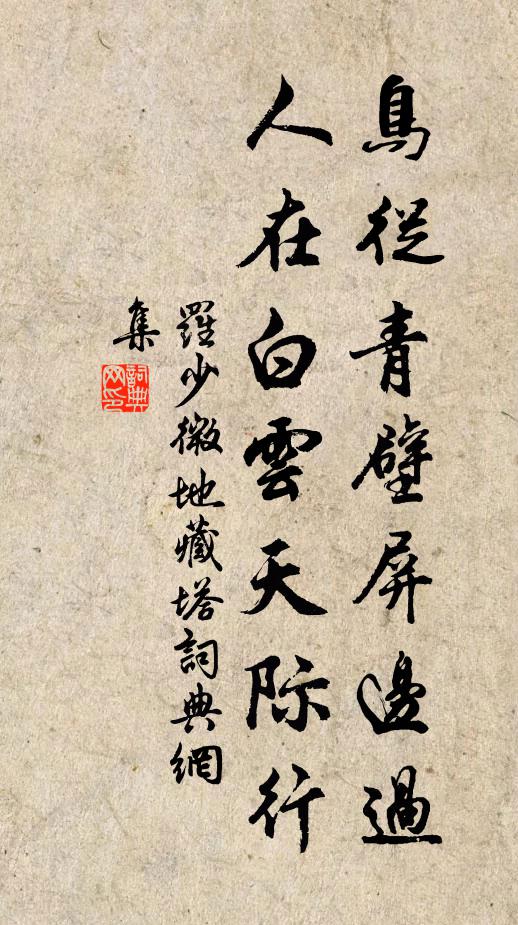 鳥從青壁屏邊過
人在白雲天际行
羅少微地藏塔詞典網
集
詞典
网印